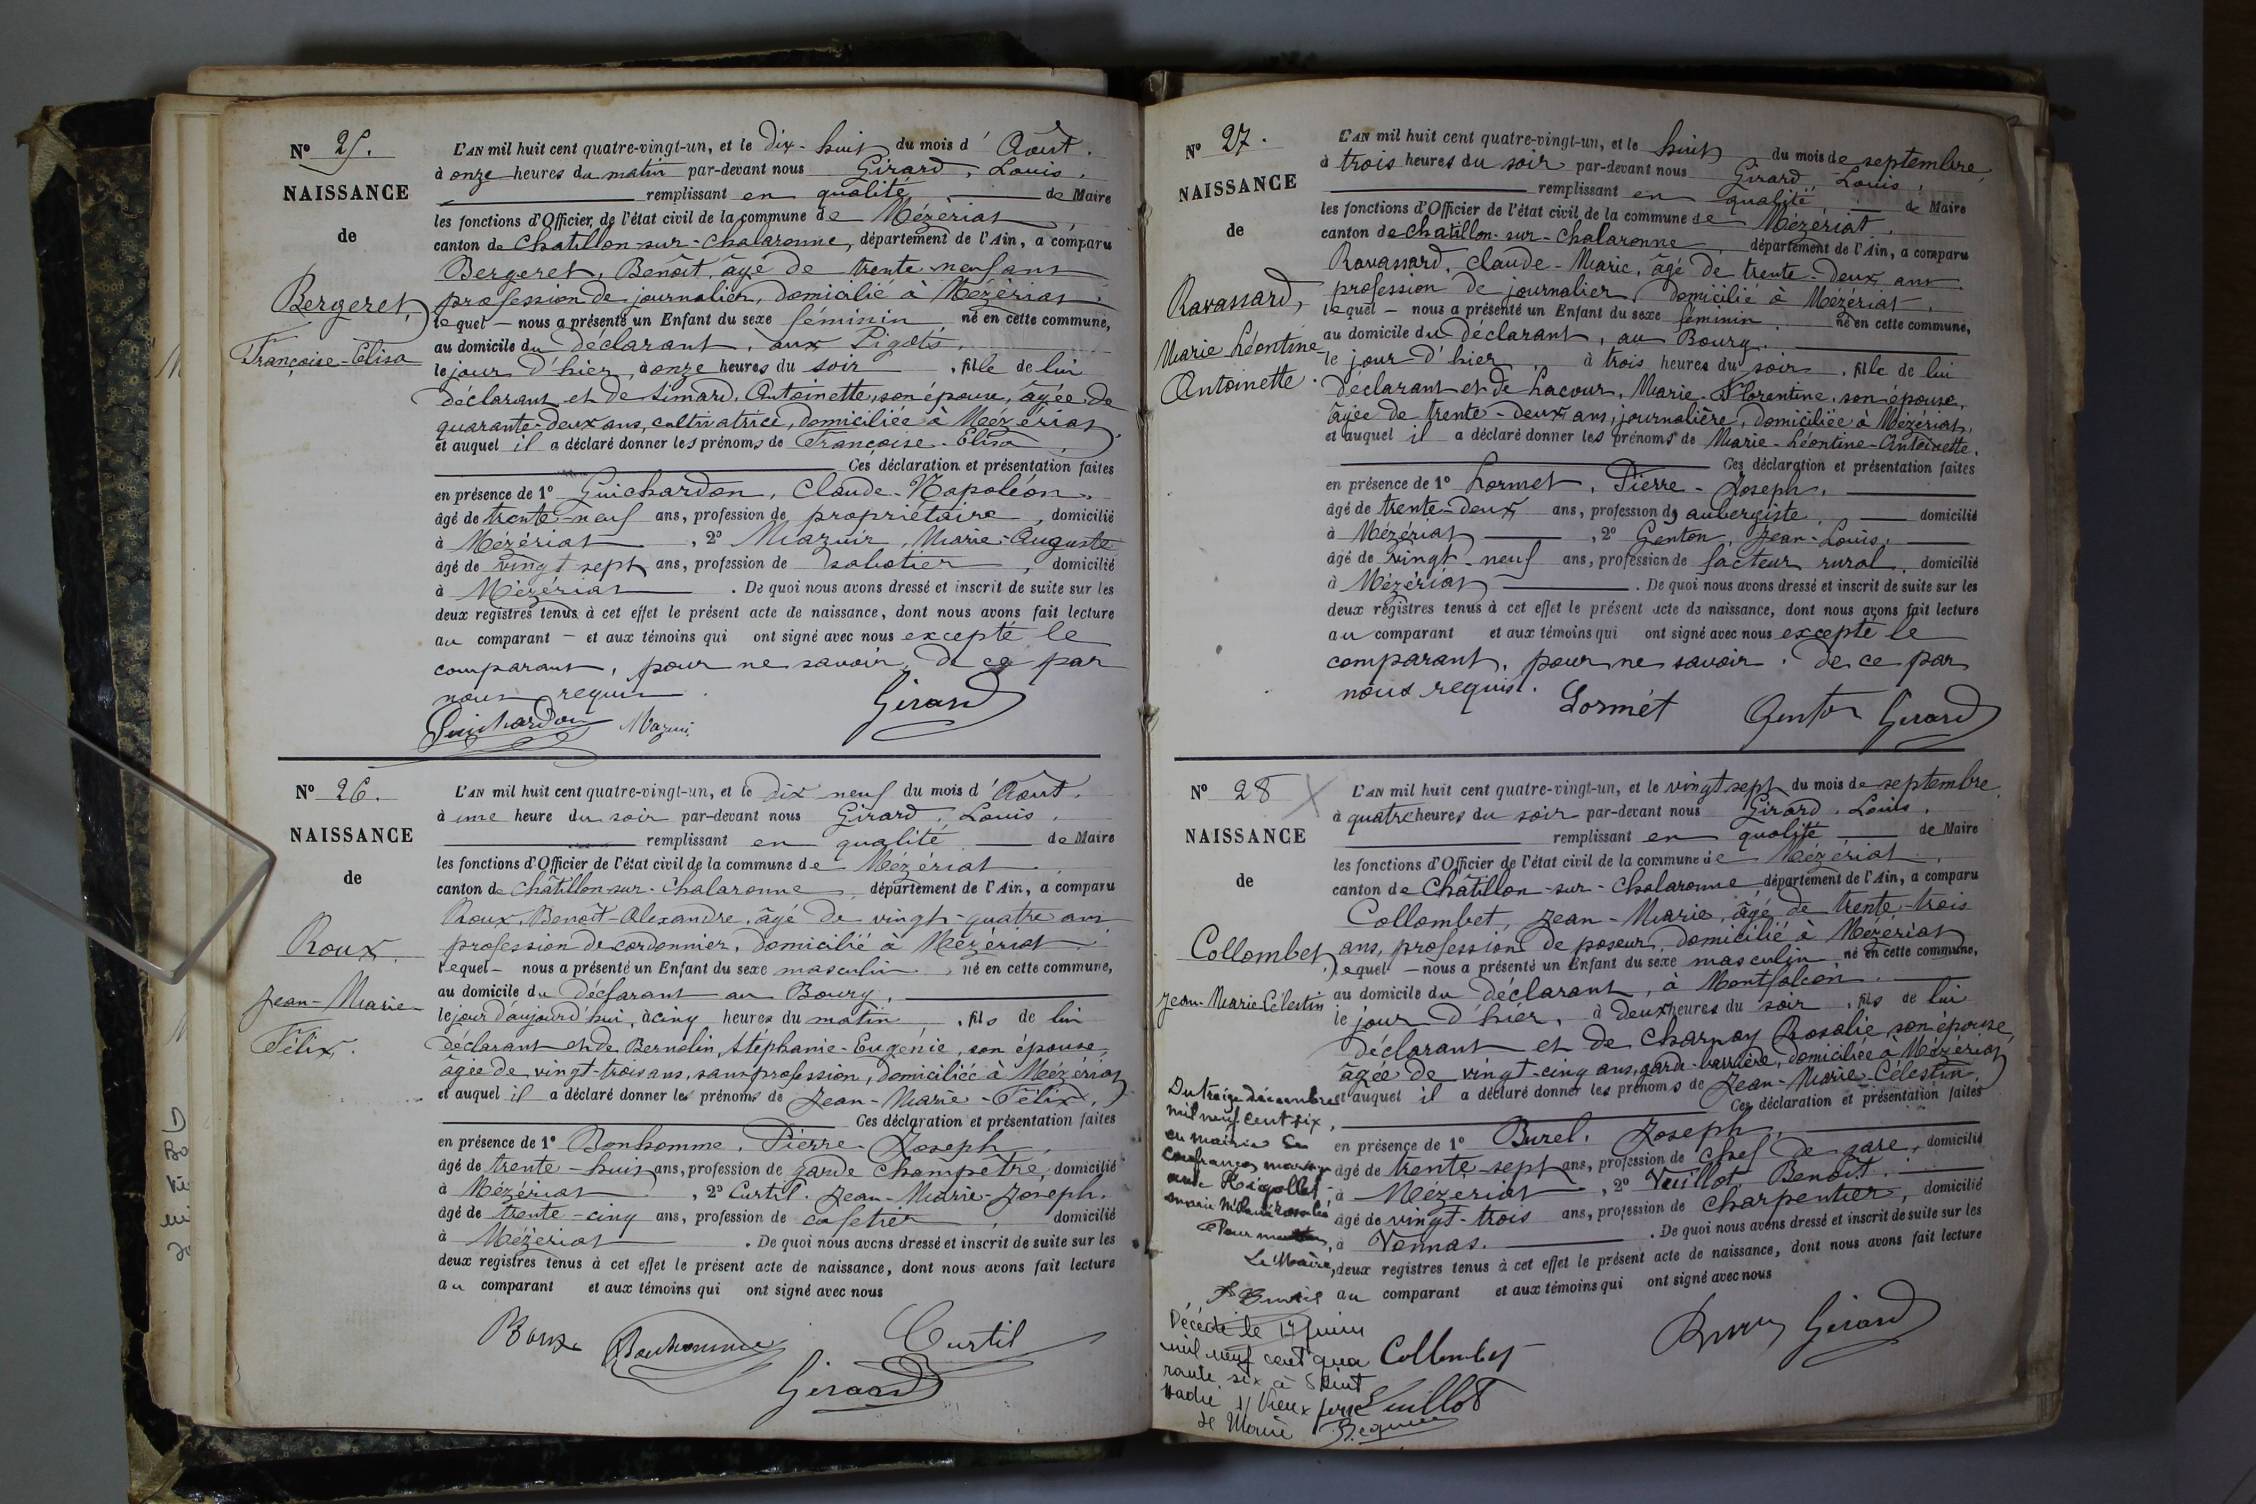 N° 25.
NAISSANCE
de
Bergeret,
Françoise-Elisa
L'AN mil huit cent quatre-vingt-un, et le dix-huit du mois d'Août.
à onze heures du matin par-devant nous Girard, Louis,
remplissant en qualité de Maire
les fonctions d'Officier de l'état civil de la commune de Mézériat
canton de Chatillon-sur-Chalaronne, département de l'Ain, a comparu
Bergeret, Benoît, âgé de trente neuf ans
profession de journalier, domicilié à Mézériat.
lequel nous a présenté un Enfant du sexe féminin né en cette commune,
au domicile du déclarant, aux Pigots.
le jour d'hier, à onze heures du soir, fille de lui
déclarant et de Simard, Antoinette, son épouse, âgée de
quarante-deux ans, cultivatrice, domiciliée à Mézériat
et auquel il a déclaré donner les prénoms de Françoise-Elisa
Ces déclaration et présentation faites
en présence de 1° Guichardon, Claude-Napoléon.
âgé de trente-neuf ans, profession de propriétaire, domicilié
à Mézériat, 2° Mazuir, Marie-Auguste
âgé de vingt sept ans, profession de sabotier, domicilié
à Mézériat. De quoi nous avons dressé et inscrit de suite sur les
deux registres tenus à cet effet le présent acte de naissance, dont nous avons fait lecture
au comparant et aux témoins qui ont signé avec nous excepté le
comparant, pour ne savoir, de ce par
nous requis.
Guichardon Mazuir Girard
N° 26.
NAISSANCE
de
Roux.
Jean-Marie-
Félix.
L'AN mil huit cent quatre-vingt-un, et le dix neuf du mois d'Août.
à une heure du soir par-devant nous Girard, Louis,
remplissant en qualité de Maire
les fonctions d'Officier de l'état civil de la commune de Mézériat
canton de Châtillon-sur-Chalaronne, département de l'Ain, a comparu
Roux, Benoît-Alexandre, âgé de vingt-quatre ans
profession de cordonnier, domicilié à Mézériat
lequel nous a présenté un Enfant du sexe masculin, né en cette commune,
au domicile du déclarant au Bourg,
le jour d'aujourd'hui, à cinq heures du matin, fils de lui
déclarant et de Bernolin, Stéphanie-Eugénie, son épouse,
âgée de vingt-trois ans, sans profession, domiciliée à Mézériat
et auquel il a déclaré donner les prénoms de Jean-Marie-Félix,
Ces déclaration et présentation faites
en présence de 1° Bonhomme, Pierre-Joseph,
âgé de trente-huit ans, profession de garde champêtre, domicilié
à Mézériat, 2° Curtil, Jean-Marie-Joseph.
âgé de trente-cinq ans, profession de cafetier, domicilié
à Mézériat. De quoi nous avons dressé et inscrit de suite sur les
deux registres tenus à cet effet le présent acte de naissance, dont nous avons fait lecture
au comparant et aux témoins qui ont signé avec nous
Roux Bonhomme Curtil
Girard
N° 27.
NAISSANCE
de
Ravassard,
Marie Léontine
Antoinette.
L'AN mil huit cent quatre-vingt-un, et le huit du mois de septembre,
à trois heures du soir par-devant nous Girard, Louis,
remplissant en qualité, de Maire
les fonctions d'Officier de l'état civil de la commune de Mézériat.
canton de Chatillon-sur-Chalaronne, département de l'Ain, a comparu
Ravassard, Claude-Marie, âgé de trente-deux ans
profession de journalier, domicilié à Mézériat,
lequel nous a présenté un Enfant du sexe féminin, né en cette commune,
au domicile du déclarant, au Bourg.
le jour d'hier, à trois heures du soir, fille de lui
déclarant et de Lacour, Marie-Florentine, son épouse,
âgée de trente-deux ans, journalière, domiciliée à Mézériat,
et auquel il a déclaré donner les prénoms de Marie-Léontine-Antoinette.
Ces déclaration et présentation faites
en présence de 1° Lormet, Pierre-Joseph,
âgé de trente-deux ans, profession de aubergiste, domicilié
à Mézériat, 2° Genton, Jean-Louis,
âgé de vingt-neuf ans, profession de facteur rural, domicilié
à Mézériat. De quoi nous avons dressé et inscrit de suite sur les
deux registres tenus à cet effet le présent acte de naissance, dont nous avons fait lecture
au comparant et aux témoins qui ont signé avec nous excepté le
comparant, pour ne savoir, de ce par
nous requis.
Lormet Genton Girard
N° 28
NAISSANCE
de
Collombet,
Jean-Marie Célestin
L'AN mil huit cent quatre-vingt-un, et le vingt sept du mois de septembre,
à quatre heures du soir par-devant nous Girard, Louis,
remplissant en qualité de Maire
les fonctions d'Officier de l'état civil de la commune de Mézériat,
canton de Châtillon-sur-Chalaronne, département de l'Ain, a comparu
Collombet, Jean-Marie, âgé de trente-trois
ans, profession de poseur, domicilié à Mézériat
lequel nous a présenté un Enfant du sexe masculin, né en cette commune,
au domicile du déclarant, à Montfalcon.
le jour d'hier, à deux heures du soir, fils de lui
déclarant et de Charnay Rosalie, son épouse
âgée de vingt-cinq ans, garde-barrière, domiciliée à Mézériat
et auquel il a déclaré donner les prénoms de Jean-Marie-Célestin,
Ces déclaration et présentation faites
en présence de 1° Burel, Joseph,
âgé de trente-sept ans, profession de chef de gare, domicilié
à Mézériat, 2° Vuillot, Benoît.
âgé de vingt-trois ans, profession de charpentier, domicilié
à Vonnas. De quoi nous avons dressé et inscrit de suite sur les
deux registres tenus à cet effet le présent acte de naissance, dont nous avons fait lecture
au comparant et aux témoins qui ont signé avec nous
Du treize décembre
mil neuf cent six,
en mairie de
Confrançon mariage
avec Rigollet
Marie
Pour mention,
Le Maire,
Décédé le 17 juin
mil neuf cent qua
rante six à Saint
Le Maire
Collombet Girard
Vuillot